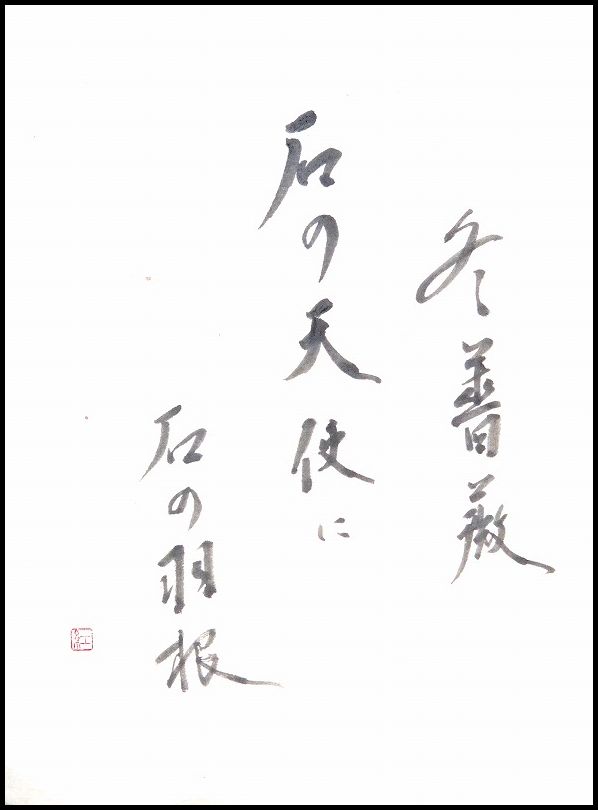 冬薔薇
石の天使に
石の羽根